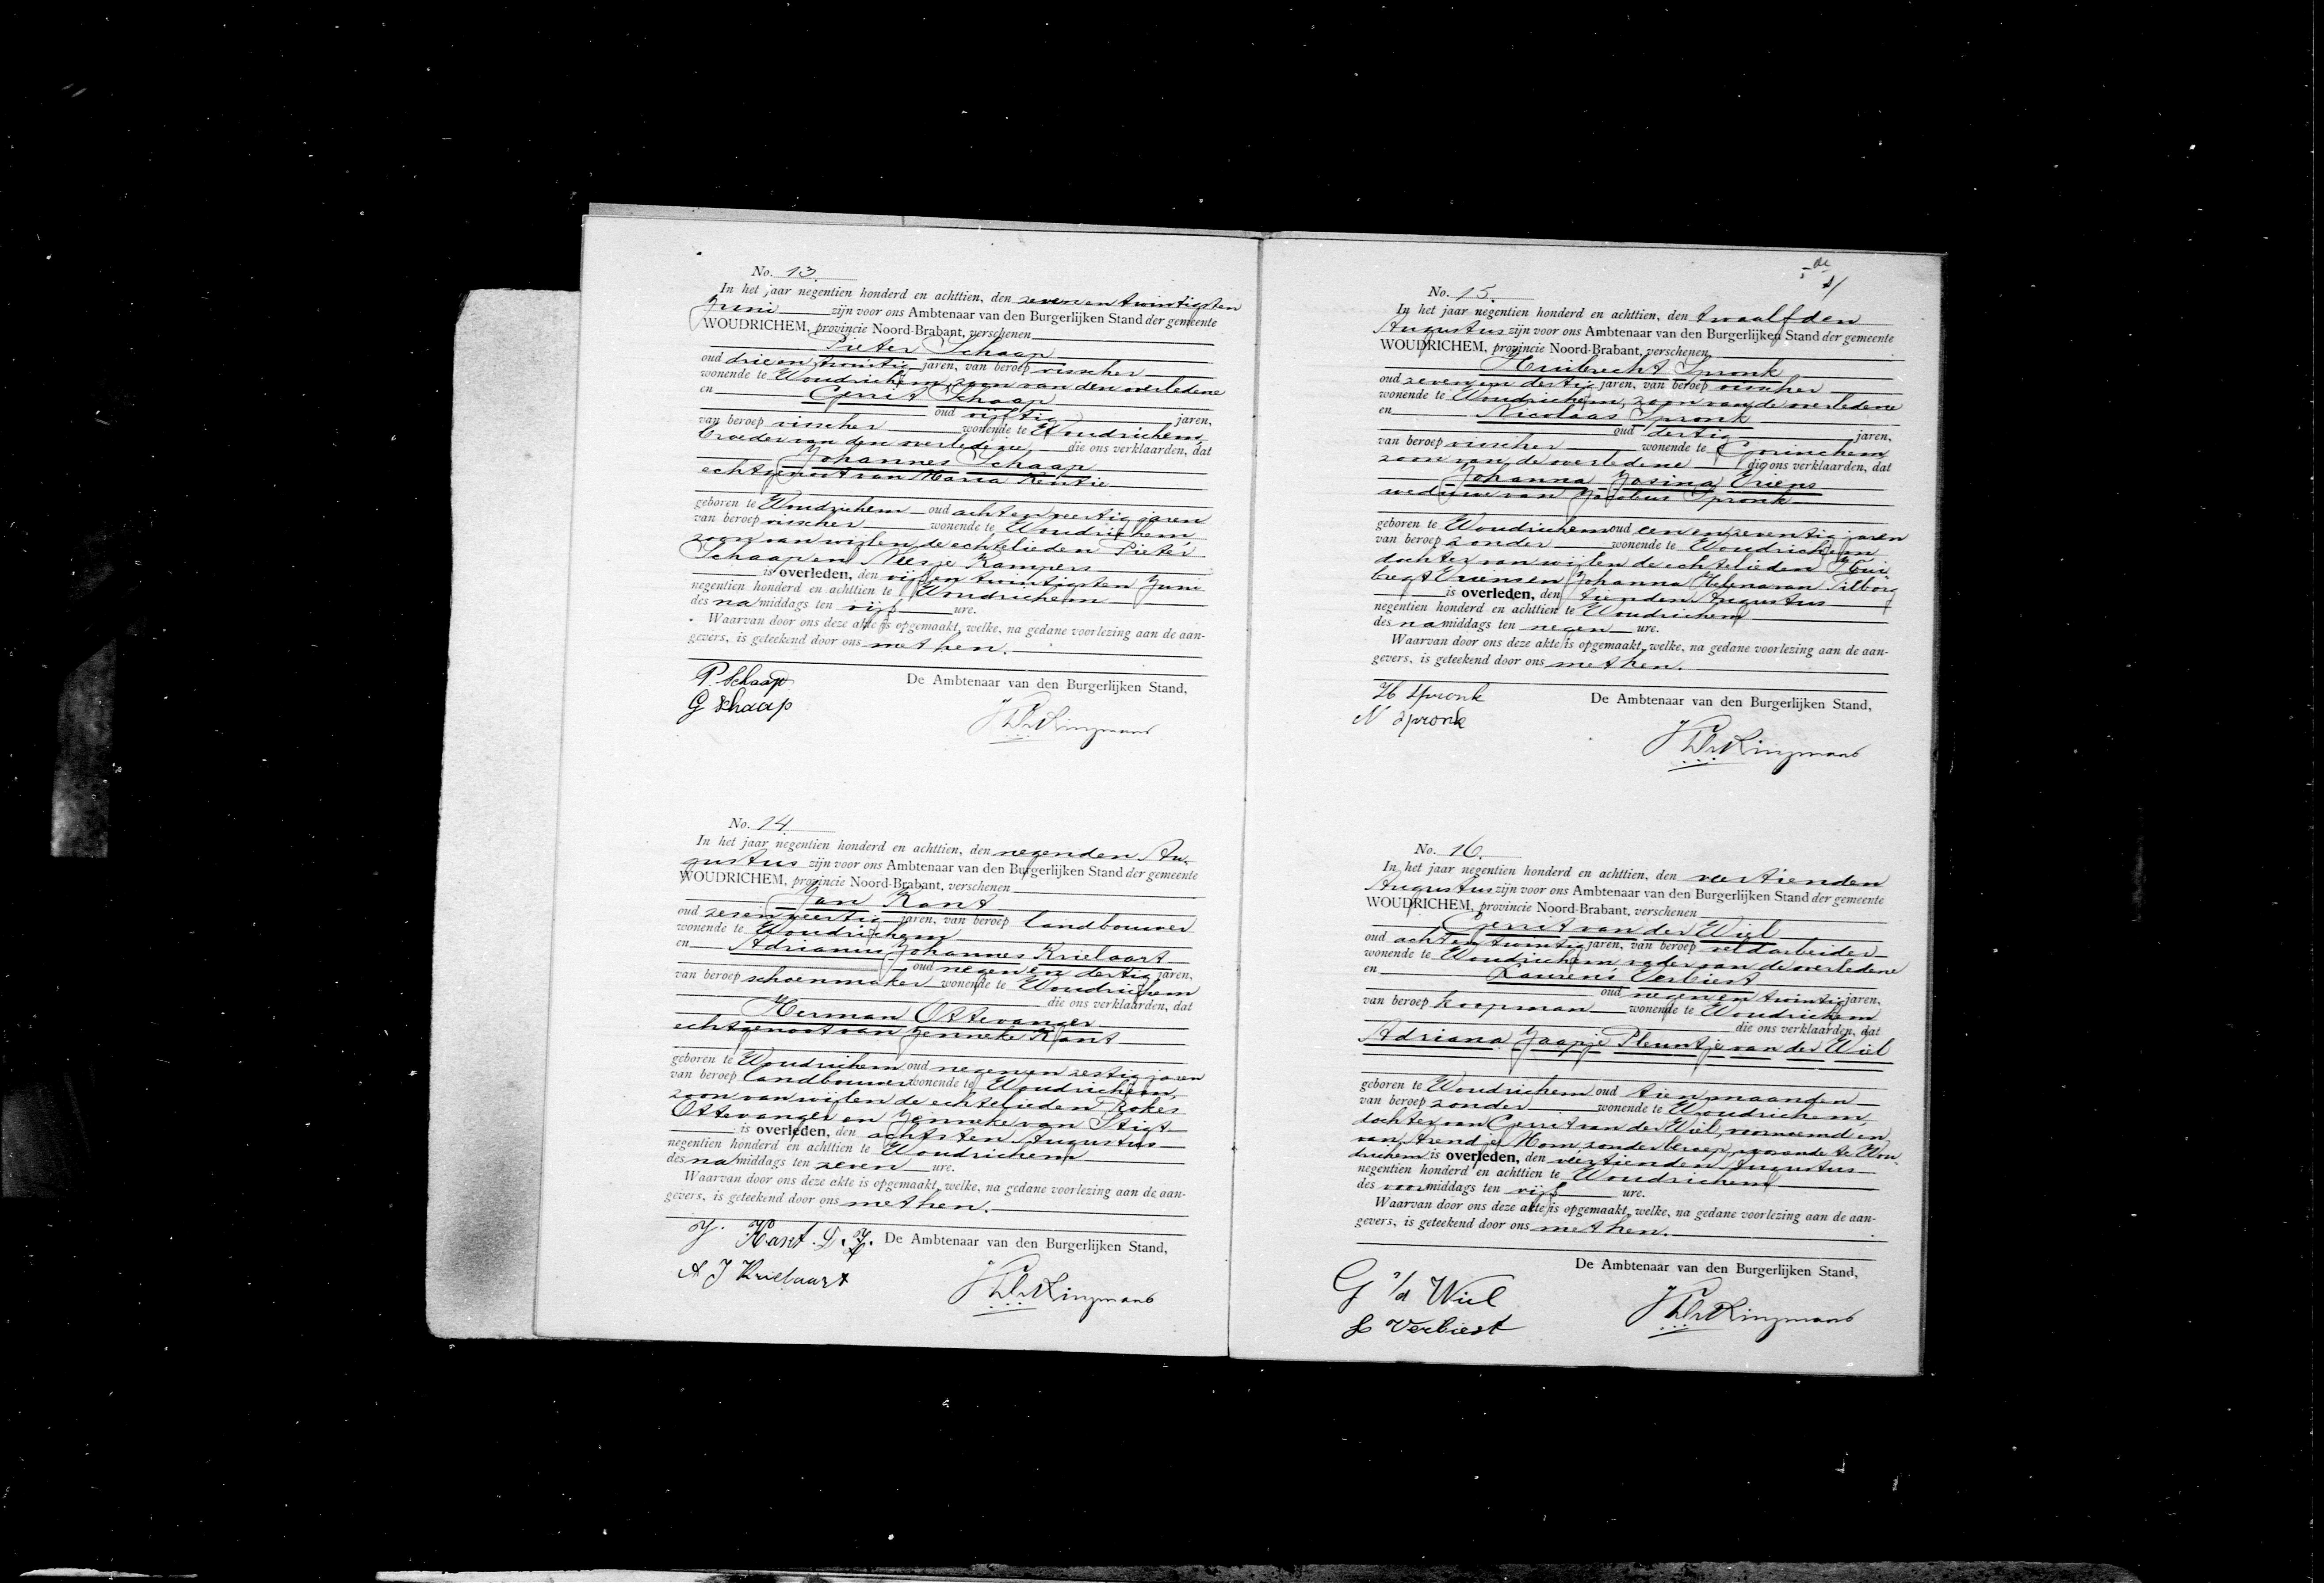 No. 13.
In het jaar negentien honderd en achttien, den zeven en twintigsten
Juni zijn voor ons Ambtenaar van den Burgerlijken Stand der gemeente
WOUDRICHEM, provincie Noord-Brabant, verschenen
Pieter Schaap
oud drie en twintig jaren, van beroep visscher
wonende te Woudrichem, zoon van den overledene
en Gerrit Schaap
oud vijftig jaren,
van beroep visscher wonende te Woudrichem,
broeder van den overledene, die ons verklaarden, dat
Johannes Schaap
echtgenoot van Maria Kentie
geboren te Woudrichem oud acht en veertig jaren
van beroep visscher wonende te Woudrichem
zoon van wijlen de echtelieden Pieter
Schaap en Neesje Kampers
is overleden, den vijf en twintigsten Juni
negentien honderd en achttien te Woudrichem
des namiddags ten vijf ure.
Waarvan door ons deze akte is opgemaakt, welke, na gedane voorlezing aan de aan-
gevers, is geteekend door ons met hen.
P. Schaap
De Ambtenaar van den Burgerlijken Stand,
G Schaap
No. 14.
In het jaar negentien honderd en achttien, den negenden Au-
gustus zijn voor ons Ambtenaar van den Burgerlijken Stand der gemeente
WOUDRICHEM, provincie Noord-Brabant, verschenen
Jan Kant
oud zes en veertig jaren, van beroep landbouwer
wonende te Woudrichem
en Adrianus Johannes Krielaart
oud negen en dertig jaren,
van beroep schoenmaker wonende te Woudrichem
die ons verklaarden, dat
Herman Ottevanger
echtgenoot van Jenneke Kant
geboren te Woudrichem oud negen en zestig jaren
van beroep landbouwer wonende te Woudrichem,
zoon van wijlen de echtelieden Rokes
Ottevanger en Jenneke van Stigt
is overleden, den achtsten Augustus
negentien honderd en achttien te Woudrichem
des namiddags ten zeven ure.
Waarvan door ons deze akte is opgemaakt, welke, na gedane voorlezing aan de aan-
gevers, is geteekend door ons met hen.
J. Kant. D. Z.
De Ambtenaar van den Burgerlijken Stand,
A J Krielaart
No. 15.
In het jaar negentien honderd en achttien, den twaalfden
Augustus zijn voor ons Ambtenaar van den Burgerlijken Stand der gemeente
WOUDRICHEM, provincie Noord-Brabant, verschenen
Huibrecht Spronk
oud zeven en dertig jaren, van beroep visscher
wonende te Woudrichem, zoon van de overledene
en Nicolaas Spronk
oud dertig jaren,
van beroep visscher wonende te Gorinchem
zoon van de overledene die ons verklaarden, dat
Johanna Josina Vriens
weduwe van Jacobus Spronk
geboren te Woudrichem oud een en zeventig jaren
van beroep zonder wonende te Woudrichem
dochter van wijlen de echtelieden Hui
bregt Vriens en Johanna Helena van Tilborg
is overleden, den tienden Augustus
negentien honderd en achttien te Woudrichem
des namiddags ten negen ure.
Waarvan door ons deze akte is opgemaakt, welke, na gedane voorlezing aan de aan-
gevers, is geteekend door ons met hen.
H Spronk
De Ambtenaar van den Burgerlijken Stand,
N Spronk
No. 16.
In het jaar negentien honderd en achttien, den veertienden
Augustus zijn voor ons Ambtenaar van den Burgerlijken Stand der gemeente
WOUDRICHEM, provincie Noord-Brabant, verschenen
Gerrit van der Wiel
oud acht en twintig jaren, van beroep veldarbeider
wonende te Woudrichem vader van de overledene
en Laurens Verbiest
oud negen en twintig jaren,
van beroep koopman wonende te Woudrichem
die ons verklaarden, dat
Adriana Jaapje Pleuntje van der Wiel
geboren te Woudrichem oud tien maanden
van beroep zonder wonende te Woudrichem,
dochter van Gerrit van der Wiel, voornoemd en
van Arendje Hom, zonder beroep, wonende te Wou-
drichem is overleden, den veertienden Augustus
negentien honderd en achttien te Woudrichem
des voormiddags ten vijf ure.
Waarvan door ons deze akte is opgemaakt, welke, na gedane voorlezing aan de aan-
gevers, is geteekend door ons met hen.
De Ambtenaar van den Burgerlijken Stand,
G v/d Wiel
L Verbiest